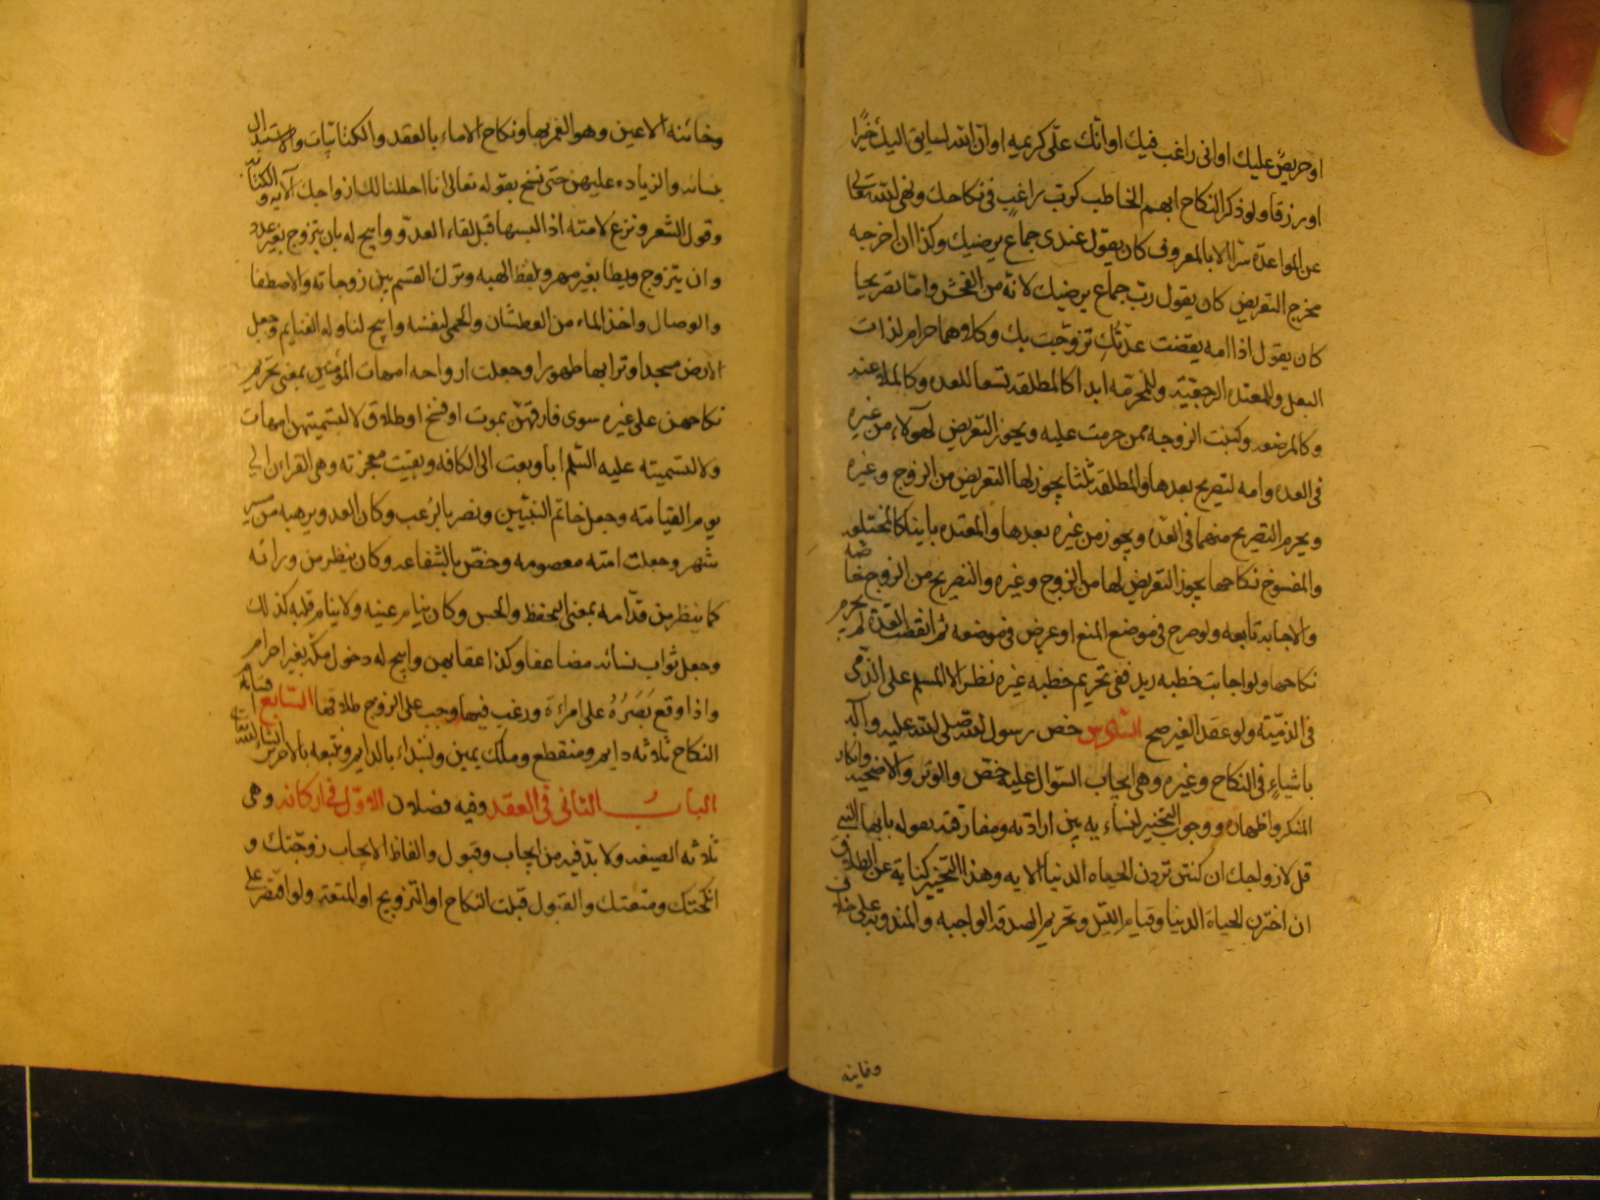 او حريص عليك او انى راغب فيك او انك علىّ كريمه او ان الله لسايق اليك خيرًا
او رزقا ولو ذكر النكاح ابهم الخاطب كرب راغب فى نكاحك ونهى الله تعالى
عن المواعدة سرًّا الا بالمعروف كان يقول عندى جماع يرضيك وكذا ان اخرجه
مخرج التعريض كان يقول ربّ جماع يرضيك لانه من الفحش وامّا تصريحا
كان يقول اذا انقضت عدّتُكِ تزوّجت بك وكلاهما حرام لذات
البعل وللمعتدة الرجعيّة وللمحرّمة ابدا كالمطلقة تسعا للعدة وكالملاعنه
وكالمرضعه وكبنت الزوجه ممن حرمت عليه ويجوز التعريض لهولاء من غيره
فى العدة والتصريح بعدها والمطلقة ثلثا يجوز لها التعريض من الزوج وغيره
ويحرم التصريح منهما فى العدّة ويجوز من غيره بعدها والمعتدة باينا كالمختلعه
والمفسوخ نكاحها يجوز التعريض لها من الزوج وغيره والتصريح من الزوج خاصّه
والاجابة تابعه ولو صرح فى موضع المنع او عرض فى موضعه ثم انقضت العدّة لم يحرم
نكاحها ولو اجابت خطبه زيد ففى تحريم خطبه غيره نظر الا المسلم على الذّمى
فى الذّميّة ولو عقد الغير صح السادس خص رسول الله صلى الله عليه وآله
باشياءٍ فى النكاح وغيره وهى ايجاب السّواك عليه خصّ والوتر والاضحية وانكار
المنكر واظهاره ووجوب التخيير لنسائه بين ارادته ومفارقته بقوله يا ايها النبى
قل لازواجك ان كنتن تردن الحيوة الدنيا الايه وهذا التخيير كناية عن الطلاق
ان اخترن الحياة الدنيا وقيام الليل وتحريم الصدقة الواجبه والمندوبة على خلاف
وخاينه
وخائنه الاعين وهو الغمز بها ونكاح الاماء بالعقد والكتابيّات والاستبدال
بنسائه والزياده عليهن حتى نسخ بقوله تعالى انا احللنا لك ازواجك الايه والكتابه
وقول الشعر ونزع لامته اذا لبسها قبل لقاء العدوّ وابيح له بان يتزوج بغير عدد
وان يتزوج ويطا بغير مهر وبلفظ الهبه وترك القسم بين زوجاته والاصطفا
والوصال واخذ الماء من العطشان والحمى لنفسه وابيح لنا وله الغنايم وجعل
الارض مسجدا وترابها طهورا وجعلت ازواجه امهات المؤمنين بمعنى تحريم
نكاحهن على غيره سوى فارقهنّ بموت او فسخ او طلاق لا لتسميتهن امهات
ولا لتسميته عليه السّلم ابا وبعث الى الكافه وبقيت معجزته وهى القران الى
يوم القيامه وجعل خاتم النبيّين ونصر بالرعب وكان العدو يرهبه من مسير
شهر وجعلت امته معصومه وخصّ بالشفاعه وكان ينظر من ورائه
كما ينظر من قدّامه بمعنى التحفظ والحس وكان ينام عينه ولا ينام قلبه كذلك
وجعل ثواب نسائه مضاعفا وكذا عقابهن وابيح له دخول مكّة بغير احرام
واذا وقع بَصَرُهُ على امراءة ورغب فيها وجب على الزوج طلاقها السابع
النكاح ثلاثه دايم ومنقطع وملك يمين ولنبداء بالدايم ونتبعه بالاخرين انشاء الله تعالى
الباب الثانى فى العقد وفيه فصلان الاوّل فى اركانه وهى
ثلاثه الصيغه ولا بدّ فيه من ايجاب وقبول والفاظ الايجاب زوّجتك و
انكحتك ومتعتك والقبول قبلت النكاح او التزويج او المتعة ولو اقتصر على